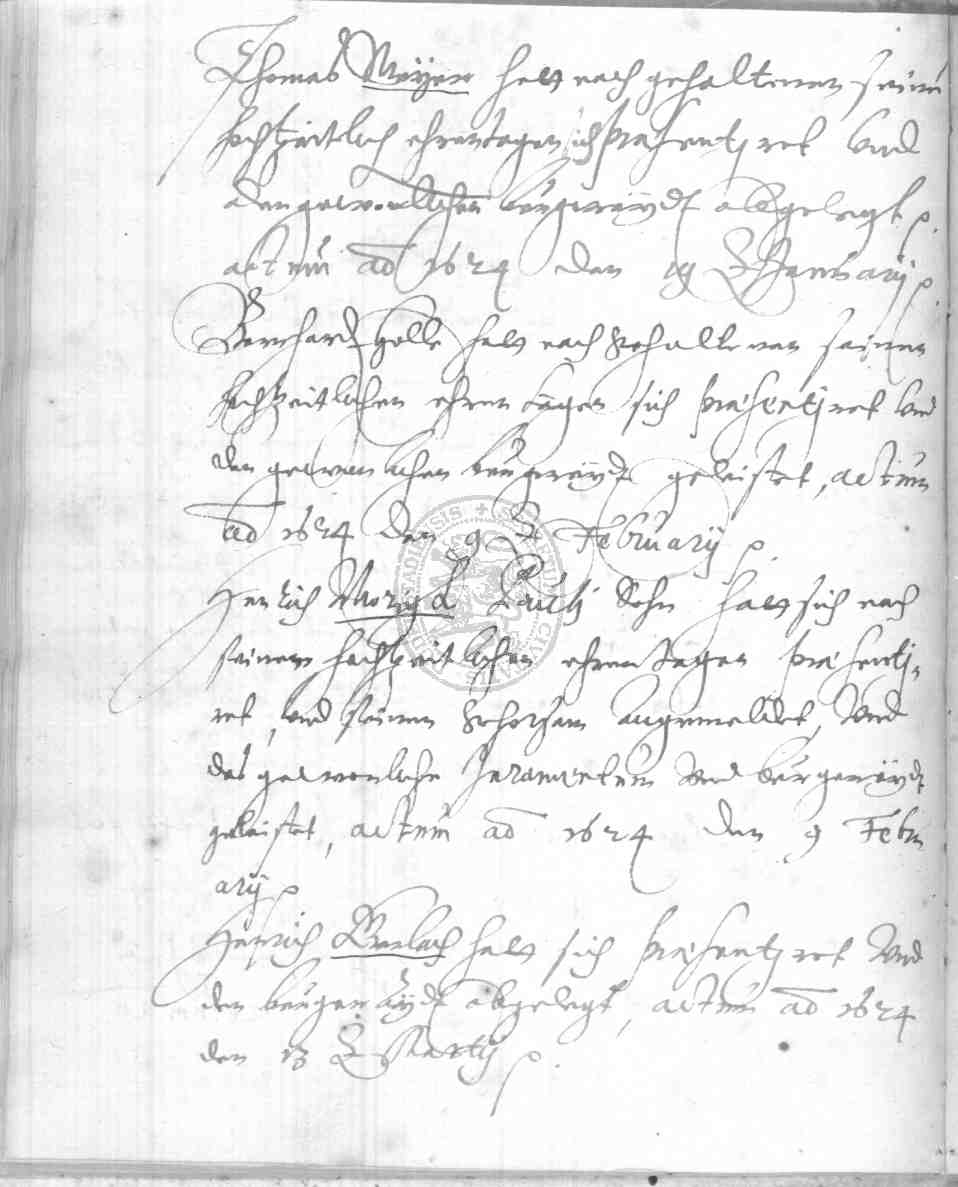 Thomas Meyer hatt nach gehaltenen seinen
hochzeitlich ehrentagen sich praesentiret vnd
den gewonlichen burgereydt abgelegt
actum ad 1624 den 19 January
Bernhardt Holle hatt nach gehaltenen seinen
hochzeitlichen ehren tagen sich praesentiret vnd
den gewonlichen burgereydt geleistet, actum
ad 1624 den 9 February
Henrich sohn hatt sich nach
seinem hochzeitlichen ehren tagen praesenti-
ret, vnd seinen gehorsam angemeldet, vnd
das gewonliche Juramentum vnd burgereydt
geleistet, actum ad 1624 den 9 Febru
ary
Henrich Gerlach hatt sich praesentiret vnd
den burgereydt abgelegt, actum ad 1624
den 13 Martij